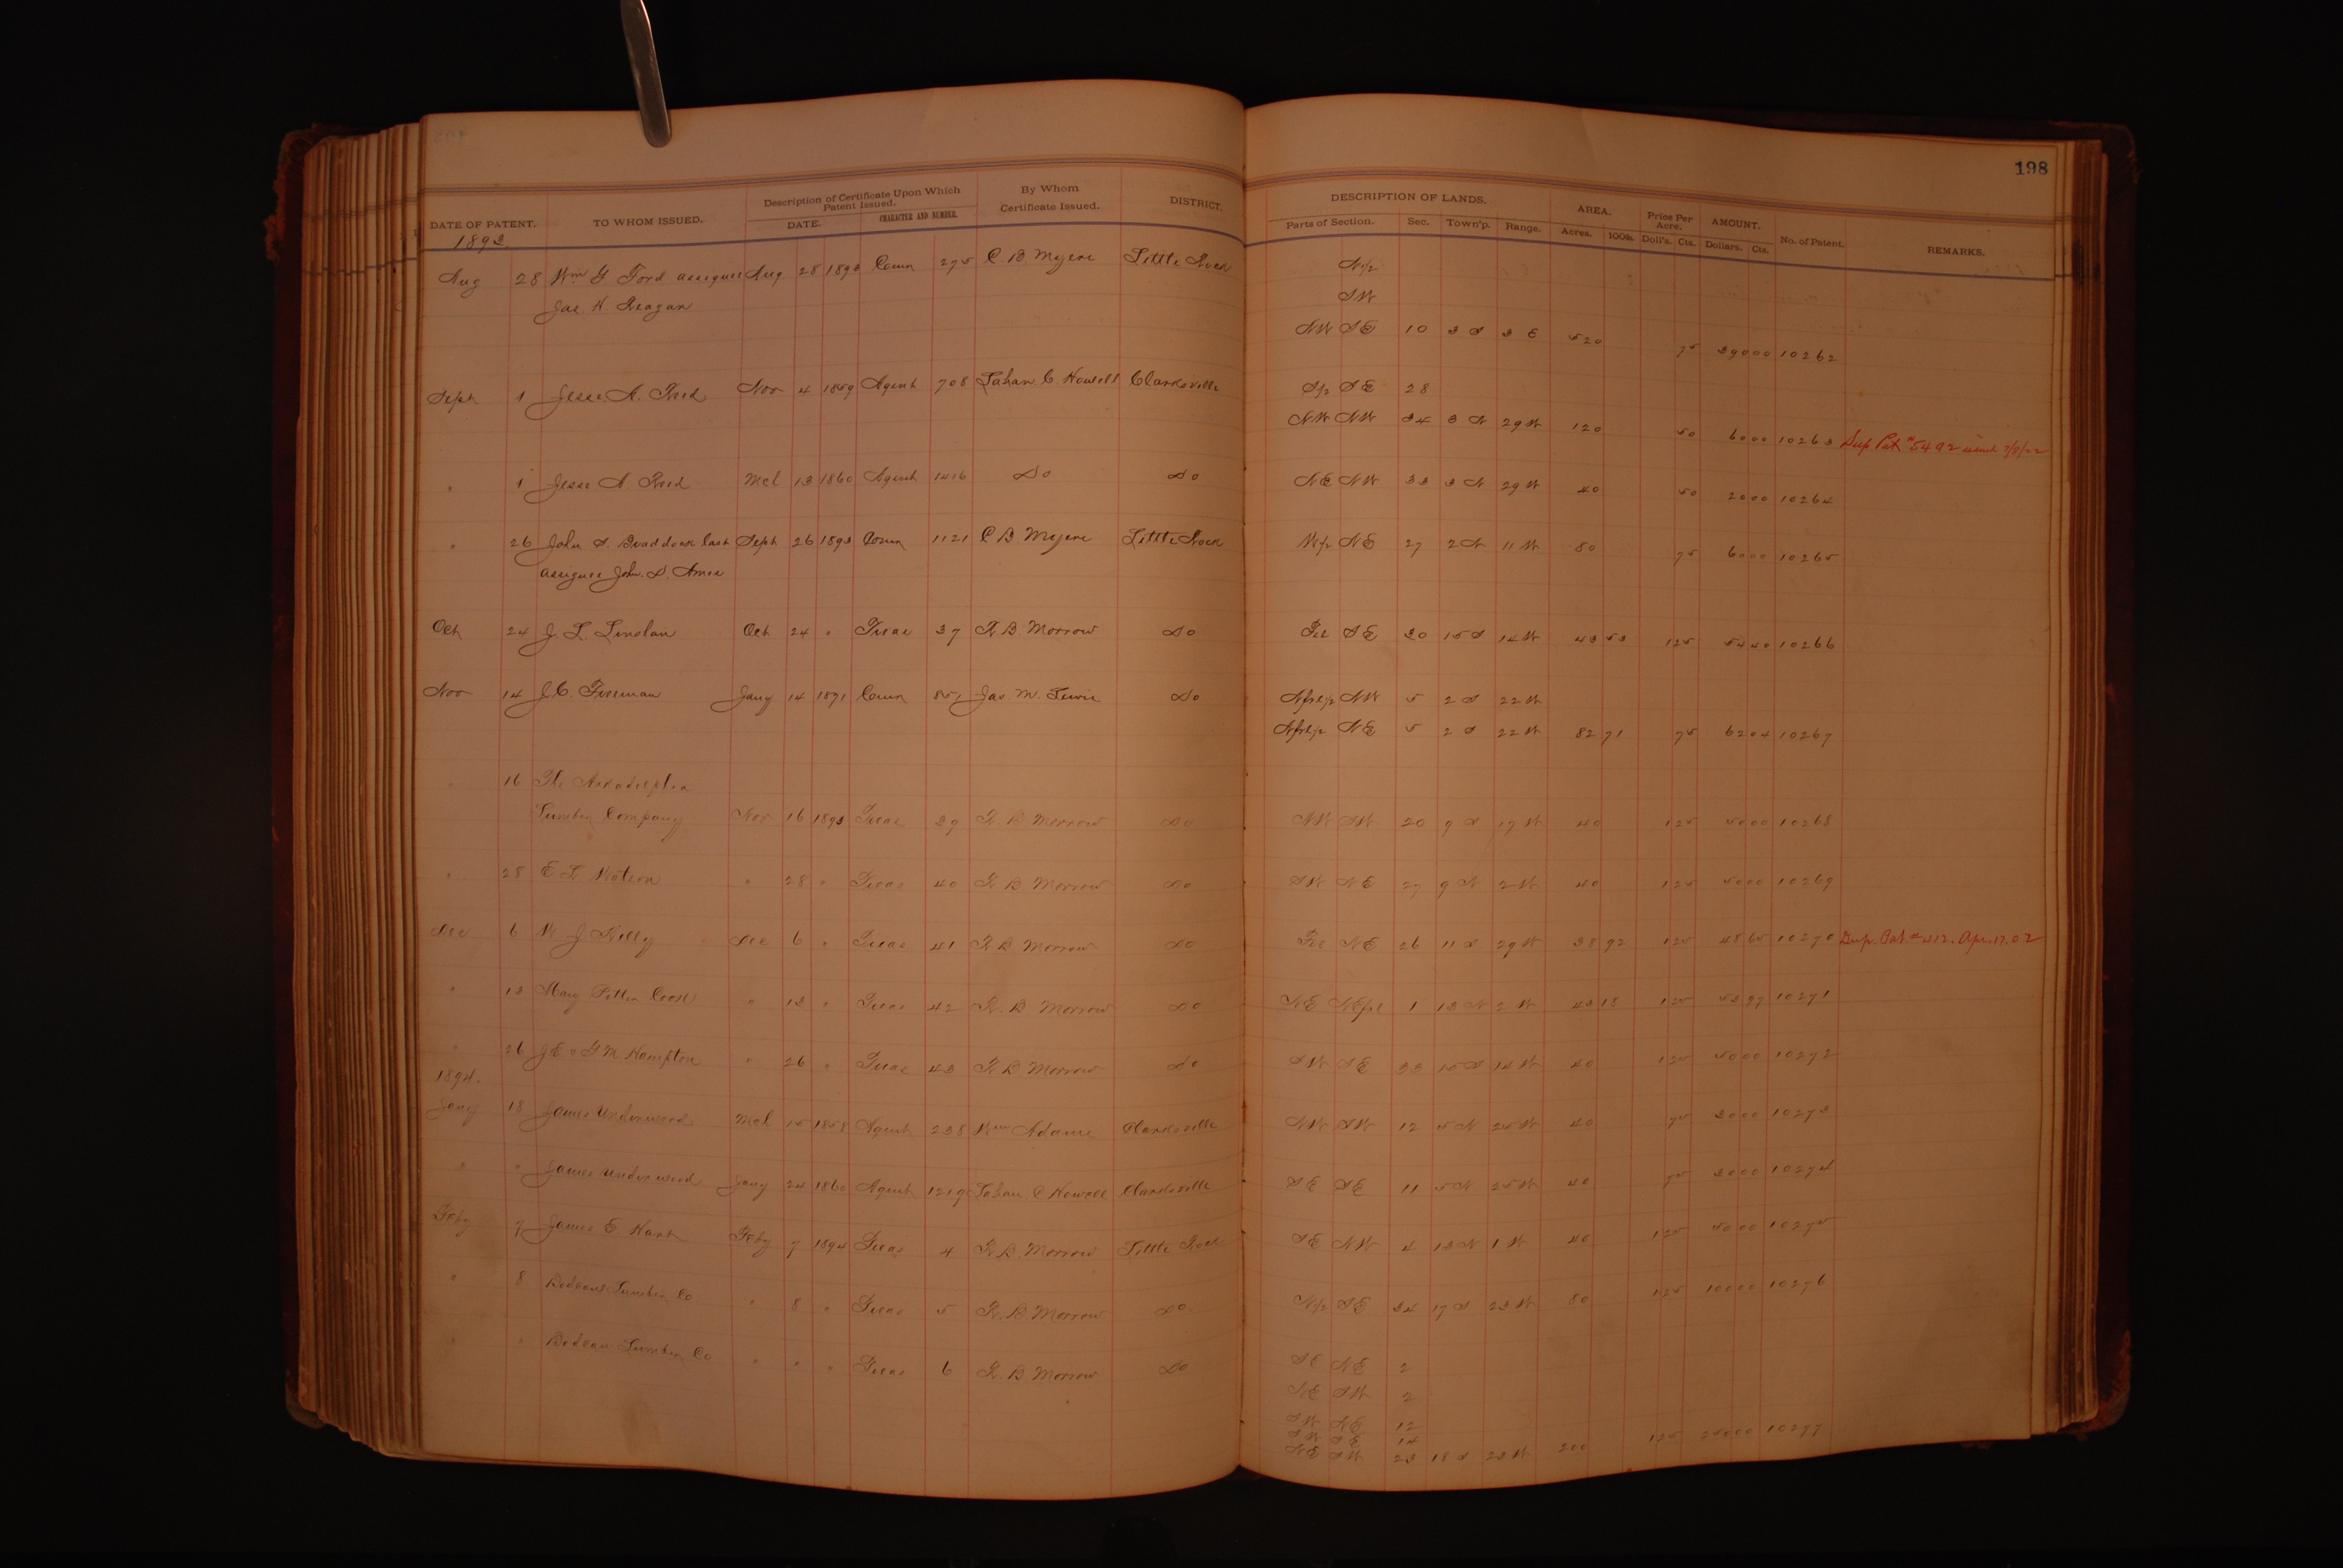 198
DATE OF PATENT. TO WHOM ISSUED. Description of Certificate Upon Which Patent Issued. DATE. CHARACTER AND NUMBER. By Whom Certificate Issued. DISTRICT. DESCRIPTION OF LANDS. Parts of Section. Sec. Town'p. Range. AREA. Acres. 100ths. Price Per Acre. Doll's. Cts. AMOUNT. Dollars. Cts. No. of Patent. REMARKS.
1893
Aug 28 Wm G Ford assignee Aug 28 1893 Comn 275 C. B. Myers Little Rock N/2
Jas. H. Reagan SW
NW SE 10 3 S 3 E 520 75 390 00 10262
Sept 1 Jesse A. Reed Nov 4 1859 Agent 708 Lahan C. Howell Clarksville S/2 SE 28
NW NW 34 3 N 29 W 120 50 60 00 10263 Dup Pat # 5492 issued
" 1 Jesse A Reed Mch 13 1860 Agent 1416 Do Do NE NW 33 3 N 29 W 40 50 20 00 10264
" 26 John S. Braddock last Sept 26 1893 Comn 1121 C B. Myers Little Rock W/2 NE 27 2 N 11 W 80 75 60 00 10265
assignee John. D. Ames
Oct 24 J. L. Linolan Oct 24 " Treas 37 R. B. Morrow Do Frl SE 30 15 S 14 W 43 53 1 25 54 40 10266
Nov 14 J. C. Freeman Jany 14 1871 Comn 851 Jas. M. Lewis Do Nfrl/2 NW 5 2 S 22 W
Nfrl/2 NE 5 2 S 22 W 82 71 75 62 04 10267
" 16 The Arkadelphia
Lumber Company Nov 16 1893 Treas 39 R. B. Morrow Do NW SW 20 9 S 17 W 40 1 25 50 00 10268
" 28 E L Watson " 28 " Treas 40 R B Morrow Do SW NE 27 9 N 2 W 40 1 25 50 00 10269
Dec 6 M J Kelly Dec 6 " Treas 41 R B Morrow Do Frl NE 26 11 S 29 W 38 92 1 25 48 65 10270 Dup. Pat. # 412. Apr. 17. 02
" 13 Mary Cook " 13 " Treas 42 R. B Morrow Do NE NEfrl 1 13 N 2 W 43 18 1 25 53 97 10271
" 26 J E & G M Hampton " 26 " Treas 43 R B Morrow Do SW SE 33 15 S 14 W 40 1 25 50 00 10272
1894.
Jany 18 James Underwood Mch 15 1858 Agent 238 Wm Adams Clarksville NW SW 12 5 N 25 W 40 75 30 00 10273
" " James Underwood Jany 24 1860 Agent 1219 Lahan C Howell Clarksville SE SE 11 5 N 25 W 40 75 30 00 10274
Feby 7 James E Hart Feby 7 1894 Treas 4 R B. Morrow Little Rock SE NW 4 13 N 1 W 40 1 25 50 00 10275
" 8 Bodcaw Lumber Co " 8 " Treas 5 R. B. Morrow Do N/2 SE 34 17 S 23 W 80 1 25 100 00 10276
" " Bodcaw Lumber Co " " " Treas 6 R. B Morrow Do SE NE 2
NE SW 2
SW NE 12
SW SE 14
NE SW 23 18 S 23 W 200 1 25 250 00 10277